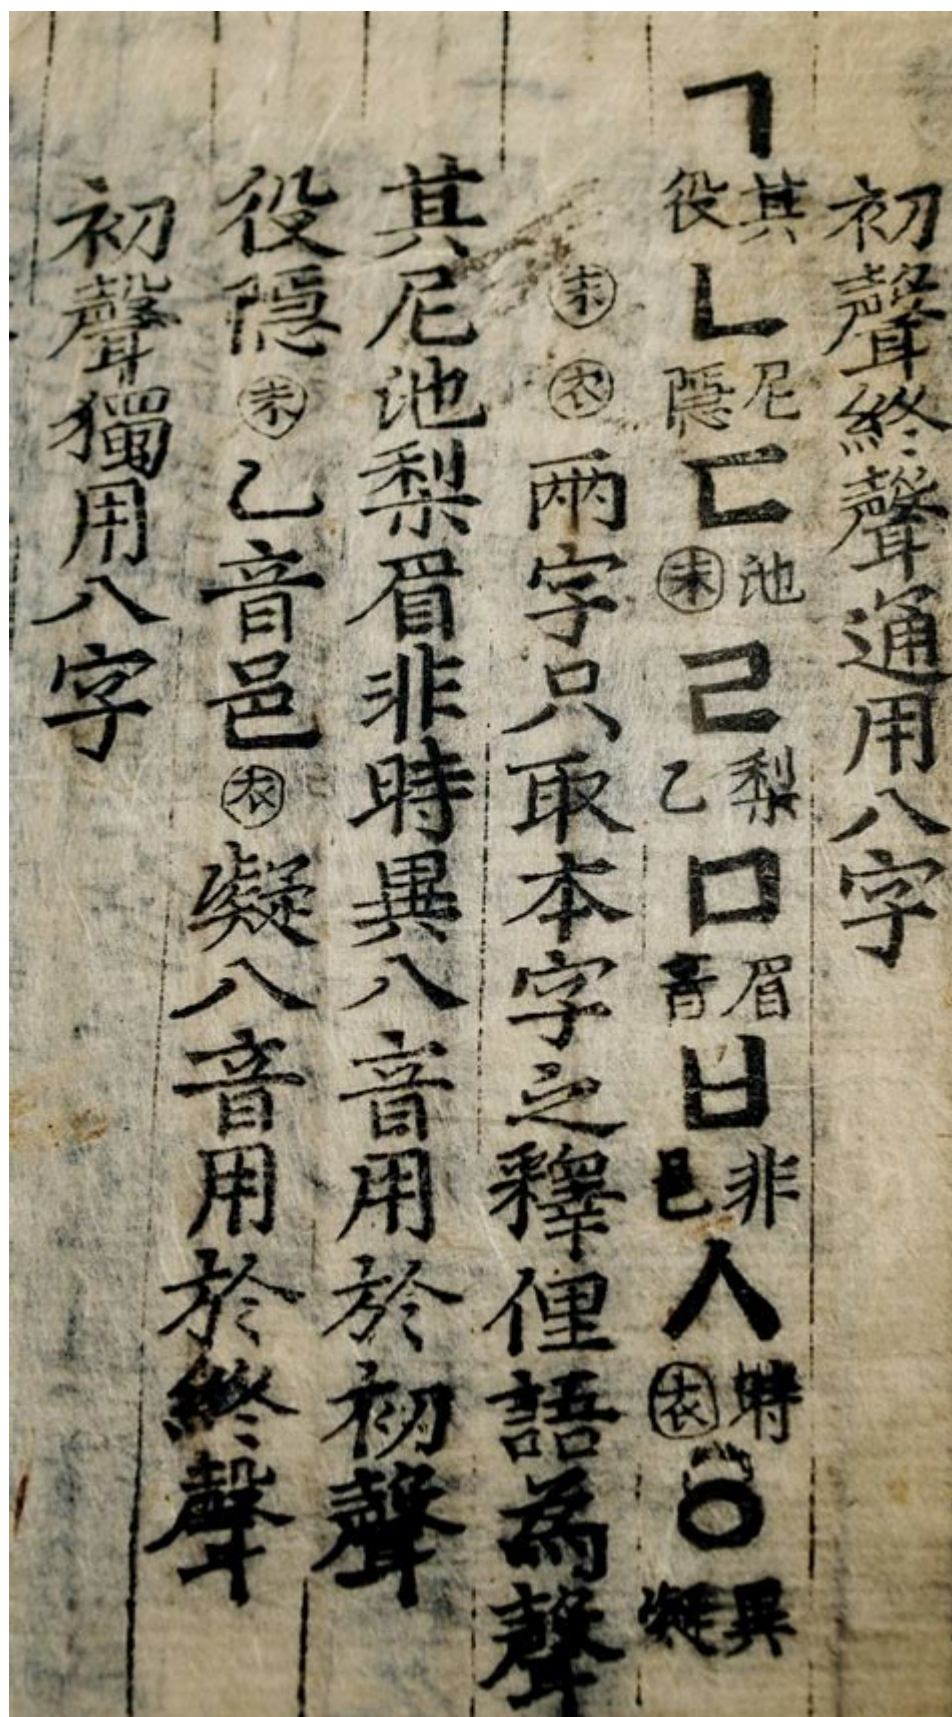 初聲終聲通用八字
ㄱ其役ㄴ尼隱ㄷ池㊍ㄹ梨乙ㅁ眉音ㅂ非邑ㅅ時衣ㆁ異凝
末衣兩字只取本字之釋俚語爲聲
其尼池梨眉非時異八音用於初聲
役隱末乙音邑衣凝八音用於終聲
初聲獨用八字